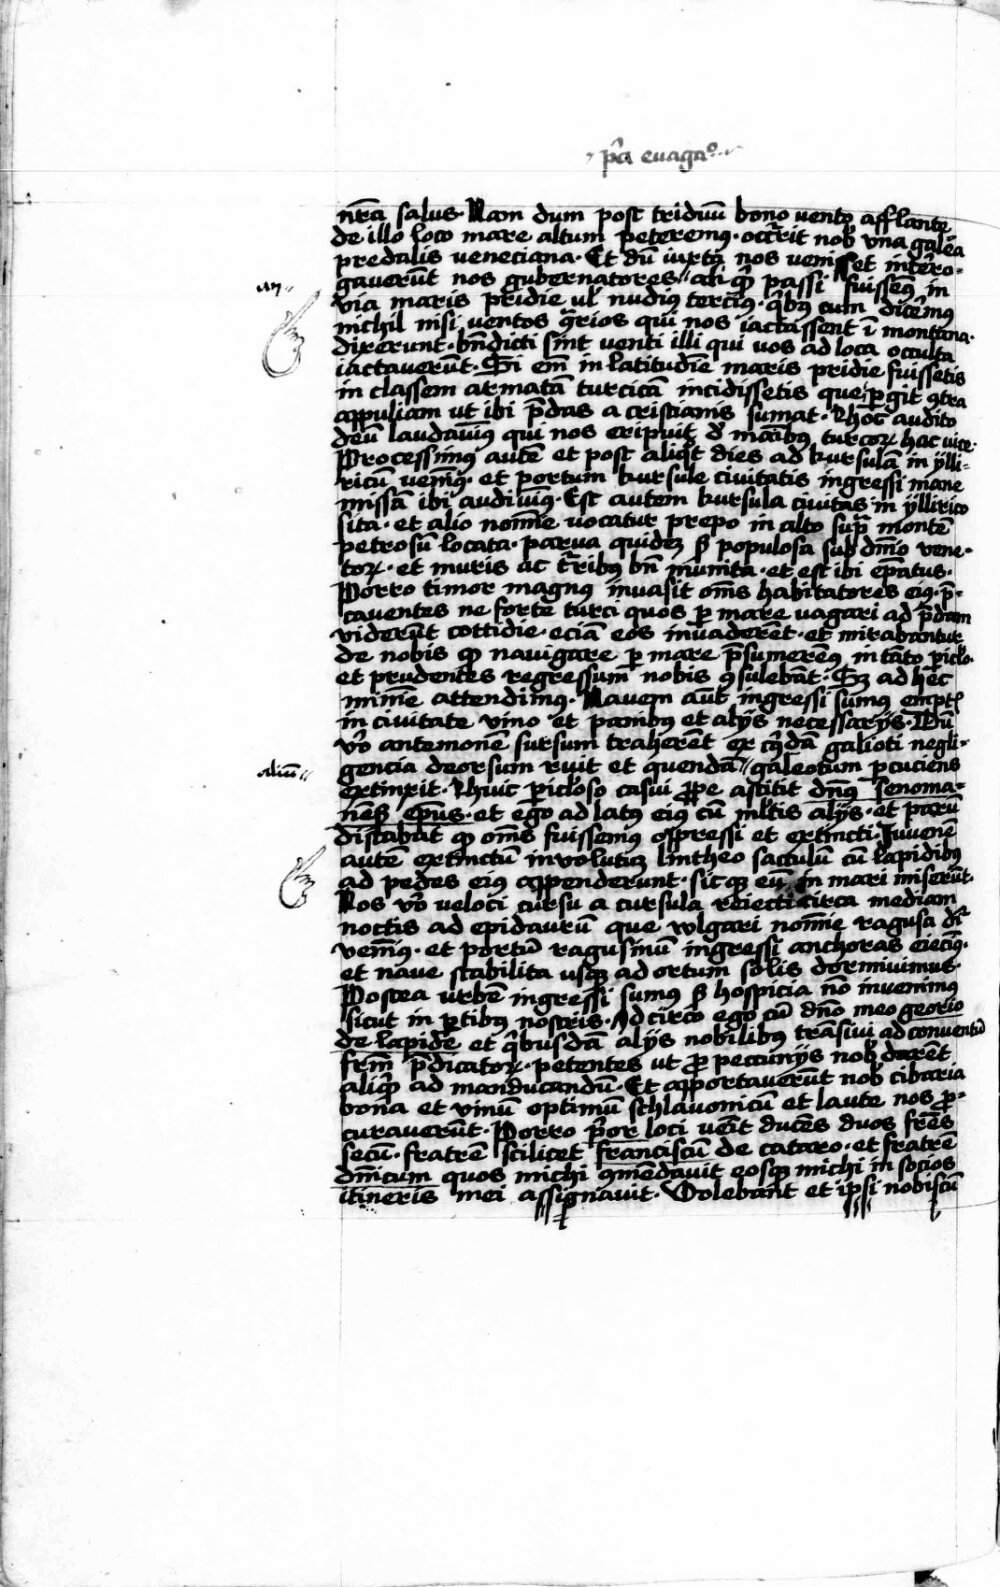 p̄a evagaᵒ
nr̄a salus · Nam dum post triduū bono vento afflante
de illo loco mare altum peteremꝰ · occ̄rrit nob̄ vna galea
predalis veneciana · Et dū iuxta nos venisset int̄ro-
gaverūt nos gubernatores // ali q̄ passi fuissemꝰ in
an //
via maris pridie vl̄ nudiꝰ terciꝰ · q̄bꝰ cum dicemꝰ
nichil nisi ventos ꝯ̄rios qui nos iactassent ī montana ·
dixerunt · bn̄dicti sint venti illi qui vos ad loca occulta
iactaverūt · Si em̄ in latitudīe maris pridie fuissetis
in classem armatā turcicā incidissetis que ꝑgit ꝯtra
appuliam ut ibi p̄das a cristianis sumat · Hoc audito
deū laudavimꝰ qui nos eripuit d̄ manibꝰ turcoꝝ hac vice ·
Processimꝰ autē et post aliq̄t dies ad kursulā in ylli-
ricū venimꝰ · et portum kursule civitatis ingressi mane
missā ibi audivimꝰ · Est autem kursula civitas in yllirico
sita · et alio noīe vocatur prepo in alto supᷓ montē
petrosū locata · parva quideꝫ sꝫ populosa sub dn̄io vene-
toꝝ · et muris ac t̄ribꝰ bn̄ munita · et est ibi ep̄atus ·
Porro timor magnꝰ invasit om̄s habitatores eiꝰ · p̄-
caventes ne forte turci quos ꝑ mare vagari ad p̄dam
viderūt cottidie · eciā eos invaderēt · et mirabantur
de nobis ꝙ navigare ꝑ mare p̄sumeremꝰ in tāto ꝑiclo ·
et prudentes regressum nobis ꝯsulebāt · Sꝫ ad hec
minīe attendimꝰ · Navem aut̄ ingressi sumꝰ empt̄
in civitate vino et panibꝰ et alijs necessarijs · Dū
vō antemonē sursum traherēt ex cꝰdā galioti negli-
gencia deorsum ruit et quendā // galeotum ꝑcuciens
aliū //
extinxit · Huic ꝑicl̄oso casui ꝓpe astitit dn̄ꝰ senoma-
nēs ep̄us · et ego ad latꝰ eiꝰ cū ml̄tis alijs · et parū
distabāt ꝙ om̄s fuissemꝰ oppressi et extincti · Iuvenē
autē extinctū involutū lintheo sacculū cū lapidibꝰ
ad pedes eiꝰ appenderunt · sicqꝫ eū in mari miserūt ·
Nos vō veloci cursu a cursula reiecti circa mediam
noctis ad epidaurū que wlgari noīe ragusa dr̄
venimꝰ · et portū ragusinū ingressi anchoras eiecimꝰ ·
et nave stabilita usqꝫ ad ortum solis dormivimus ·
Postea urbē ingressi sumꝰ sꝫ hospicia nō invenimus
sicut in ꝑtibus nostris · Idcirco ego cū dn̄o meo georio
de lapide et q̄busdā alijs nobilibus trāsivi ad conventū
frm̄ p̄dicatoꝝ · petentes ut ꝓ peccunijs nob̄ darēt
aliq̄ ad manducandū · Et apportaverūt nob̄ cibaria
bona et vinū optimū schlavonicū et laute nos ꝓ-
curaverūt · Porro p̄or loci venit ducēs duos fr̄es
secū · fratrē scilicet franciscū de cataro · et fratrē
dn̄icum quos michi ꝯmēdavit eosqꝫ michi in socios
itineris mei assignavit · Volebant et ipsi nobiscū